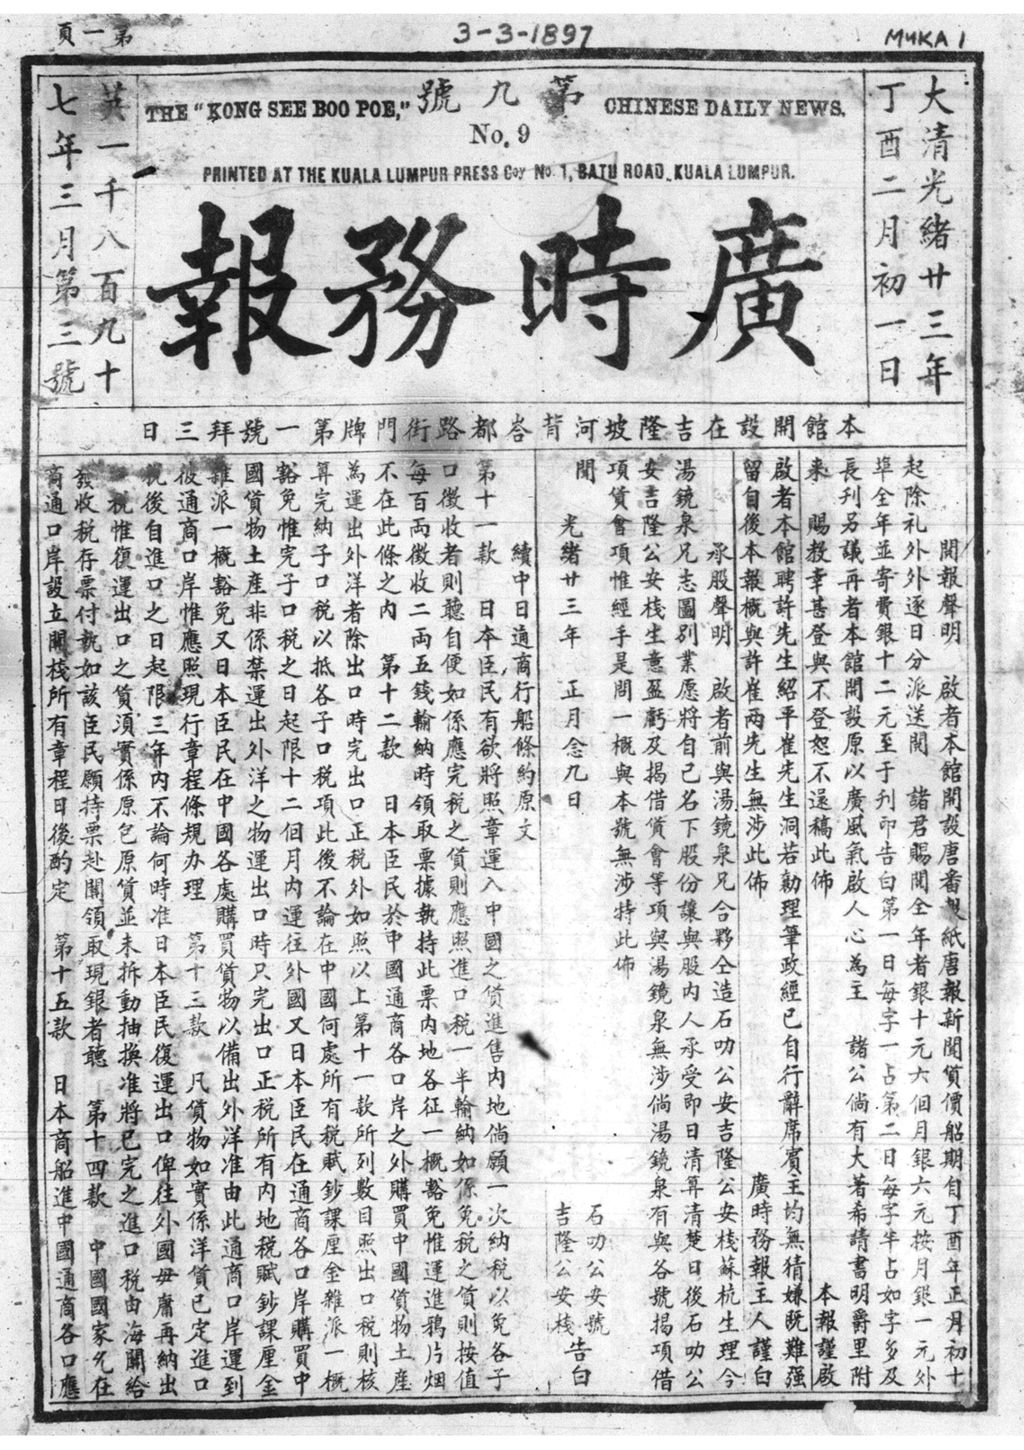 頁一第
3-3-1897
MYKA 1
大清光緒廿三年
丁酉二月初一日
號九第
THE "KONG SEE BOO POE,"
CHINESE DAILY NEWS.
No. 9
PRINTED AT THE KUALA LUMPUR PRESS Coy No. 1, BATU ROAD. KUALA LUMPUR.
報務時廣
英一千八百九十
七年三月第三號
日三拜號一第牌門街路都峇背河坡隆吉在設開館本
閱報聲明 啟者本館開設唐番報紙唐報新聞貨價船期自丁酉年正月初十
起除礼外外逐日分派送閱 諸君賜閱全年者銀十元六個月銀六元按月銀一元外
埠全年並寄費銀十二元至于刊印告白第一日每字一占第二日每字半占如字多及
長刊另議再者本館開設原以廣風氣啟人心為主 諸公倘有大著希請書明爵里附
來 賜教幸甚登與不登恕不還稿此佈 本報謹啟
啟者本館聘許先生紹平崔先生洞若勷理筆政經已自行辭席賓主均無猜嫌既難强
留自後本報概與許崔兩先生無涉此佈 廣時務報主人謹白
承股聲明 啟者前與湯鏡泉兄合夥仝造石叻公安吉隆公安棧蘇杭生理今
湯鏡泉兄志圖別業愿將自己名下股份讓與股內人承受即日清算清楚日後石叻公
安吉隆公安棧生意盈虧及揭借貨會等項與湯鏡泉無涉倘湯鏡泉有與各號揭項借
項貨會項惟經手是問一概與本號無涉特此佈
聞 光緒廿三年 正月念九日
石叻公安號
吉隆公安棧
告白
續中日通商行船條約原文
第十一款 日本臣民有欲將照章運入中國之貨進售內地倘願一次納稅以免各子
口徵收者則聽自便如係應完稅之貨則應照進口稅一半輸納如係免稅之貨則按值
每百兩徵收二兩五錢輸納時領取票據執持此票內地各征一概豁免惟運進鴉片烟
不在此條之內 第十二款 日本臣民於中國通商各口岸之外購買中國貨物土產
為運出外洋者除出口時完出口正稅外如照以上第十一款所列數目照出口稅則核
算完納子口稅以抵各子口稅項此後不論在中國何處所有稅賦鈔課厘金雜派一概
豁免惟完子口稅之日起限十二個月內運往外國又日本臣民在通商各口岸購買中
國貨物土產非係禁運出外洋之物運出口時只完出口正稅所有內地稅賦鈔課厘金
雜派一概豁免又日本臣民在中國各處購買貨物以備出外洋准由此通商口岸運到
彼通商口岸惟應照現行章程條規办理 第十三款 凡貨物如實係洋貨已定進口
稅後自進口之日起限三年內不論何時准日本臣民復運出口俾往外國毋庸再納出
口稅惟復運出口之貨須實係原包原貨並未拆動抽換准將已完之進口稅由海關給
發收稅存票付執如該臣民願持票赴關領取現銀者聽 第十四款 中國國家允在
商通口岸設立關棧所有章程日後酌定 第十五款 日本商船進中國通商各口應